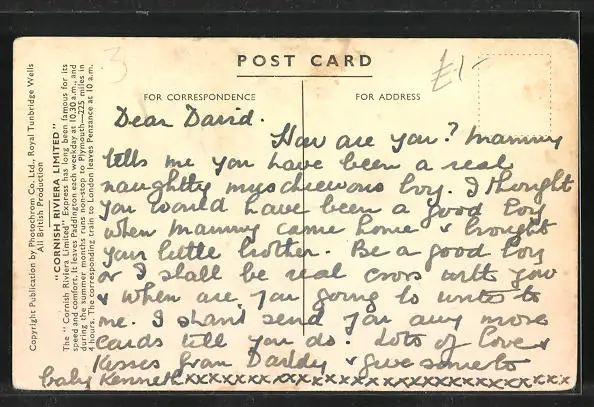 POST CARD
3
£1-
FOR CORRESPONDENCE
FOR ADDRESS
Copyright Publication by Photochrom Co., Ltd., Royal Tunbridge Wells
All British Production
"CORNISH RIVIERA LIMITED"
The "Cornish Riviera Limited" Express has long been famous for its
speed and comfort. It leaves Paddington each weekday at 10.30 a.m., and
during the summer months runs non-stop to Plymouth—225 miles in
4 hours. The corresponding train to London leaves Penzance at 10 a.m.
Dear David.
How are you? Mammy
tells me you have been a real
naughtty muscheivous boy. I thought
you would have been a good boy
when Mammy came home & brought
your little brother. Be a good boy
or I shall be real cross with you
& when are you going to write to
me. I shan't send you any more
cards till you do. Lots of love &
Kisses from Daddy & give some to
baby Kenneth xxxxxxxxxxxxxxxxxxxxxxxxxxxx